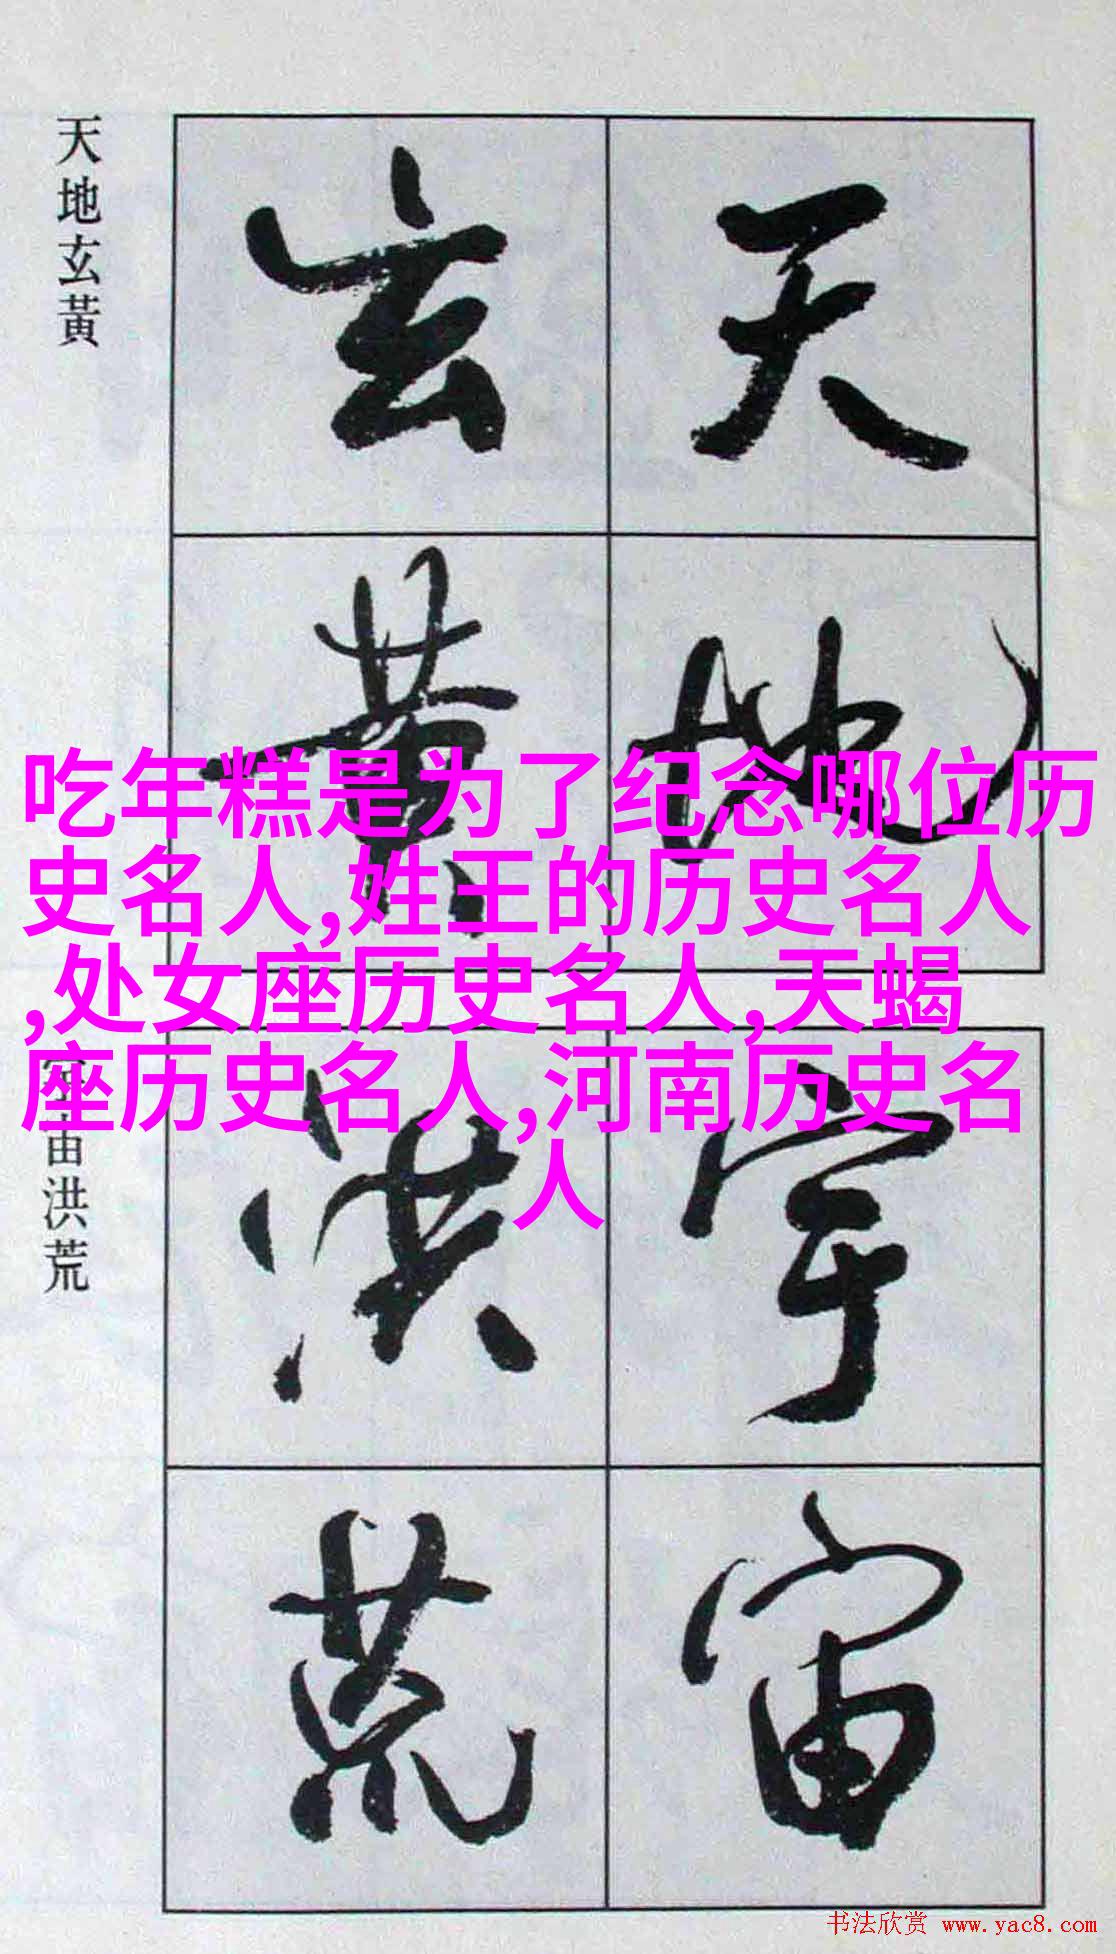 天地玄黃
天地
玄黃
吃年糕是为了纪念哪位历
史名人,姓王的历史名人
,处女座历史名人,天蝎
座历史名人,河南历史名
人
宙洪荒
宇宙
洪荒
书法欣赏 www.yac8.com